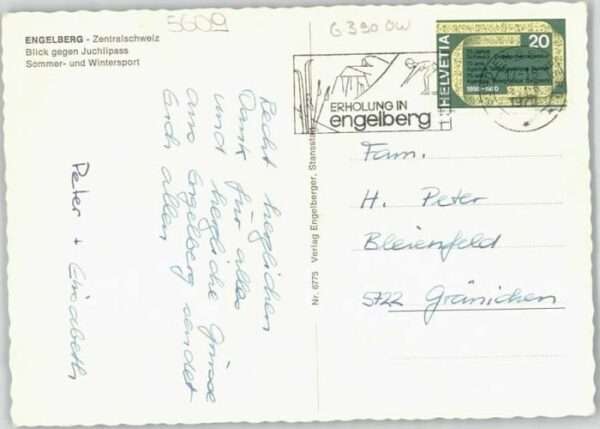 ENGELBERG - Zentralschweiz
Blick gegen Juchlipass
Sommer- und Wintersport
5609
G 390 OW
HELVETIA
20
ERHOLUNG IN
engelberg
Recht herzlichen
Dank für alles
und herzliche Grüsse
aus Engelberg sendet
Euch allen
Peter + Elisabeth
Nr. 6775 Verlag Engelberger, Stansstad
Fam.
H. Peter
Bleienfeld
5722 Gränichen